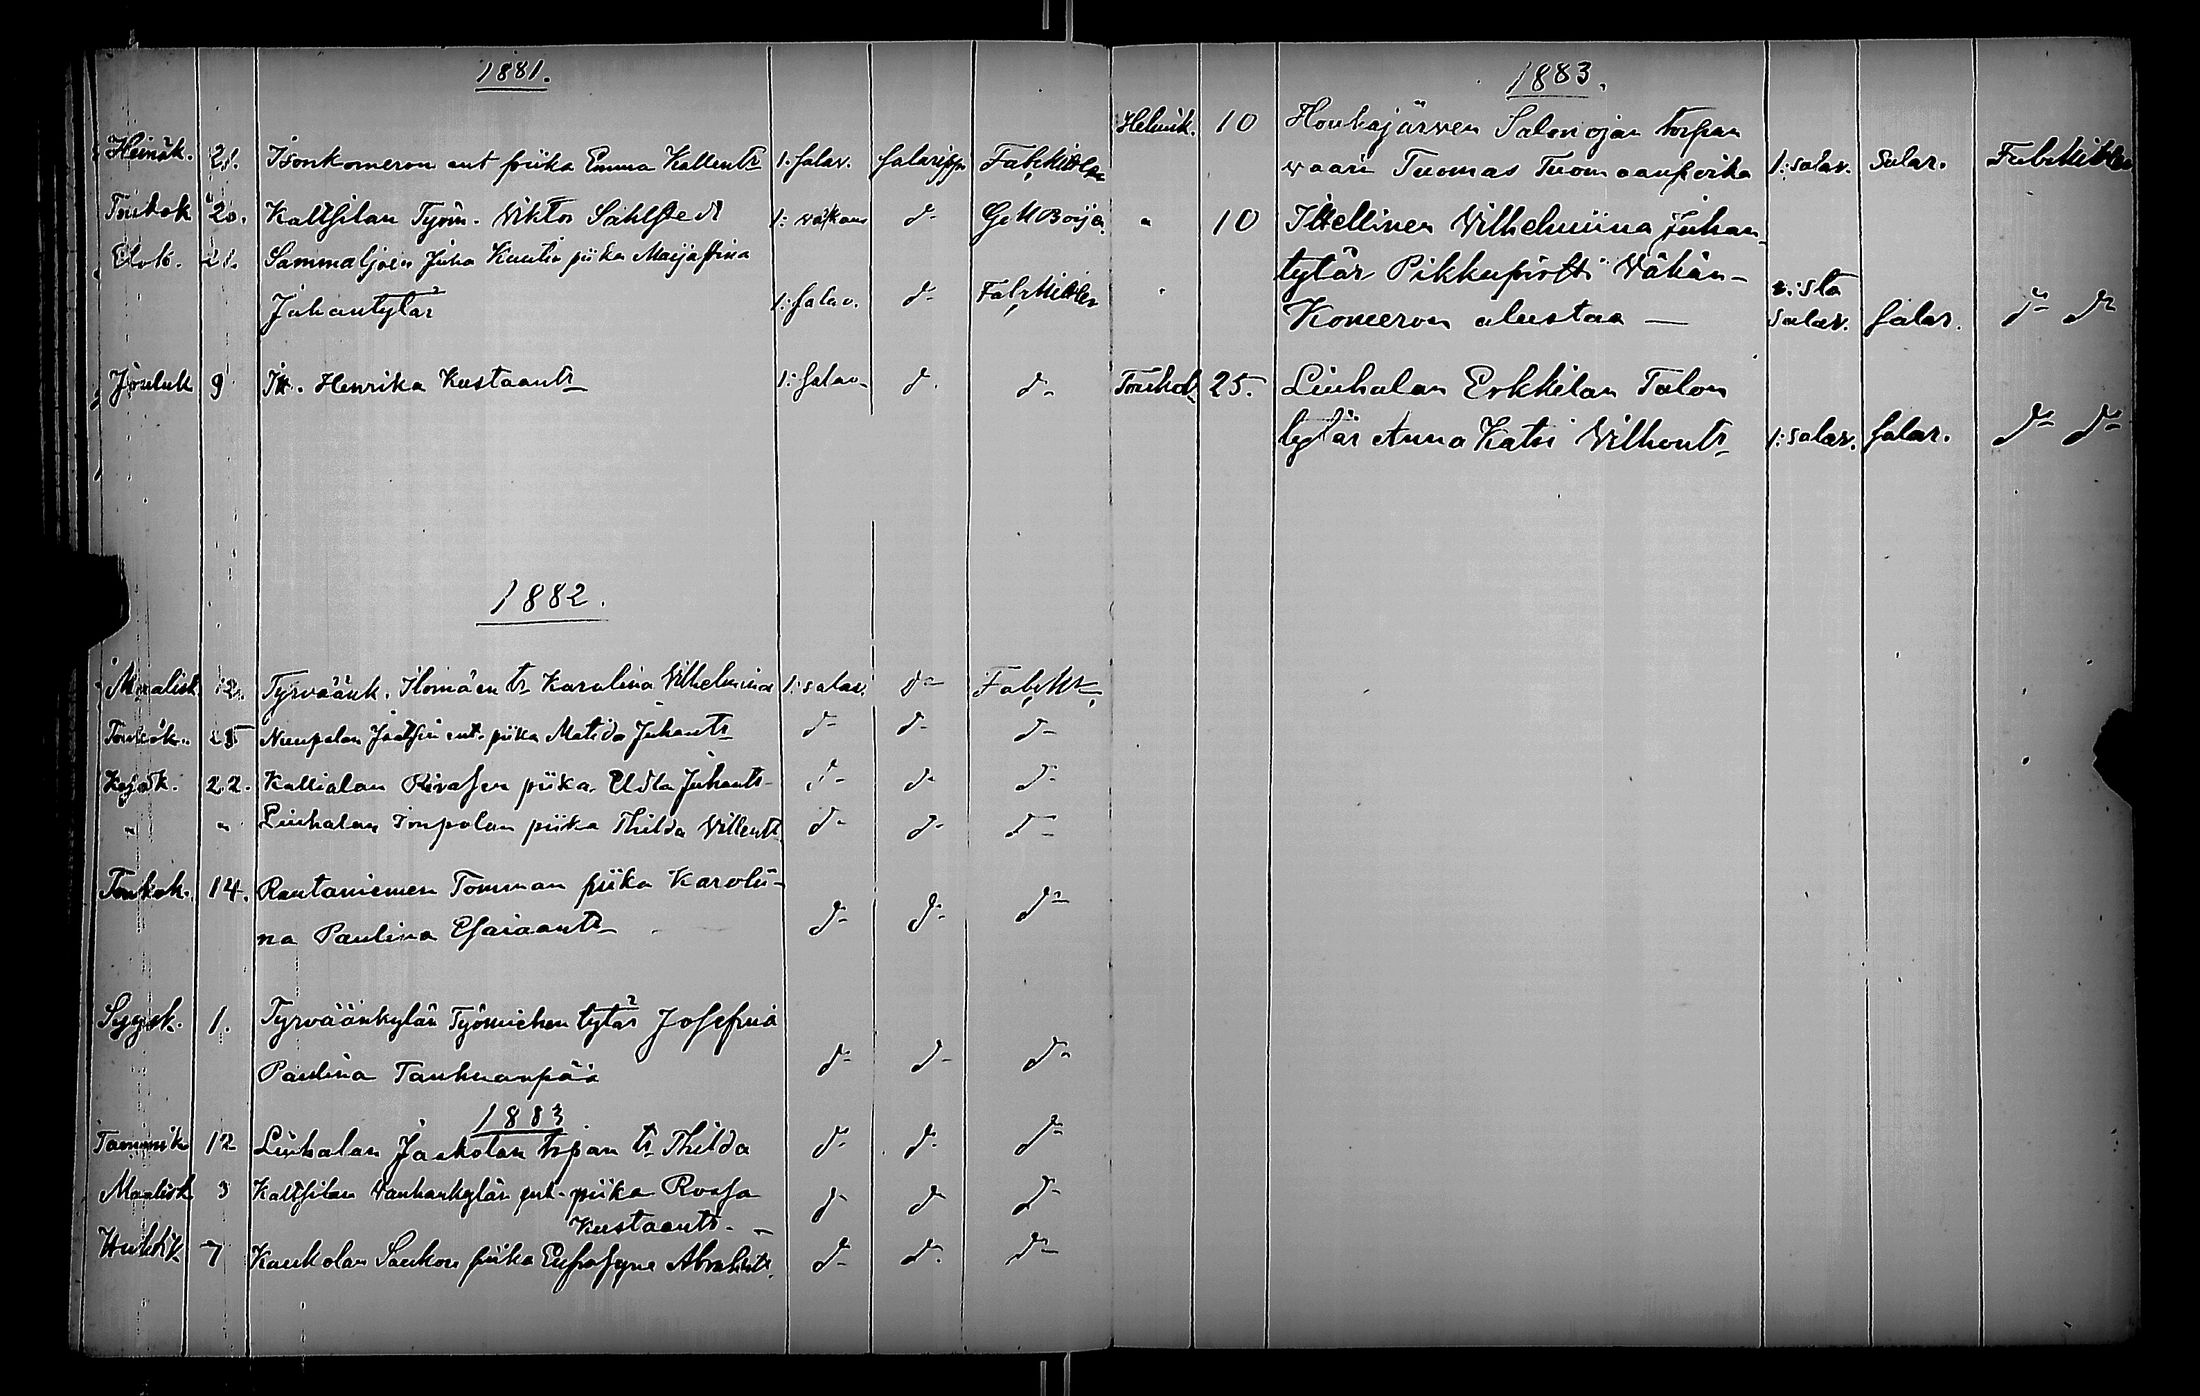 1881.
Heinäk. 21. Isonkomeron ent piika Emma Kallentr 1: salav. salaripp. Fab. Mittler
Toukok 20. Kaltsilan Työm. Viktor Sahlstedt 1: d- G M Borja
Elok. 21. Sammaljoen Juha piika Maijastina
Juhantytär 1: salav. d- Fab. Mittler
Jouluk 9 It. Henrika Kustaantr 1: salav- d. d-
1882.
Maalisk. 12. Tyrväänk. Ilomäen tr Karolina Vilhelmina 1: salav. d- Fab. Mt
Toukok. 25 Nuupalan ent. piika Matida Juhantr d- d- d-
22. Kallialan piika Edla Juhantr d- d- d-
" " Liuhalan Joupolan piika Thilda Villentr d- d- d-
Toukok. 14. Rautaniemen Tomman piika Karolii-
na Paulina Esaiaantr d- d- d-
Syysk. 1. Tyrväänkylän Työmiehen tytär Josefina
Paulina Tanhuanpää d- d- d-
1883
Tammik 12 Liuhalan Jaakolan torpan tr Thilda d- d- d-
Maalisk 3 Kaltsilan Vanhankylän ent. piika Roosa
Kustaantr. - d- d- d-
Huhtik 7 Kaukolan Saukon piika Eufrosyne Abrahtr. d- d. d-
1883.
Helmik. 10 Houhajärven Salonojan torpan
vaari Tuomas Tuomaanpoika 1: salav. Salar. Fab Mittler
" 10 Itellinen Vilhelmiina Juhan-
tytär Pikkupirtti Vähän-
Komeron alustaa — 2: sta salav. salar. d- d-
Toukok 25. Liuhalan Erkkilan Talon
tytär Anna Katri Vilhontr 1: salav. salar. d- d-